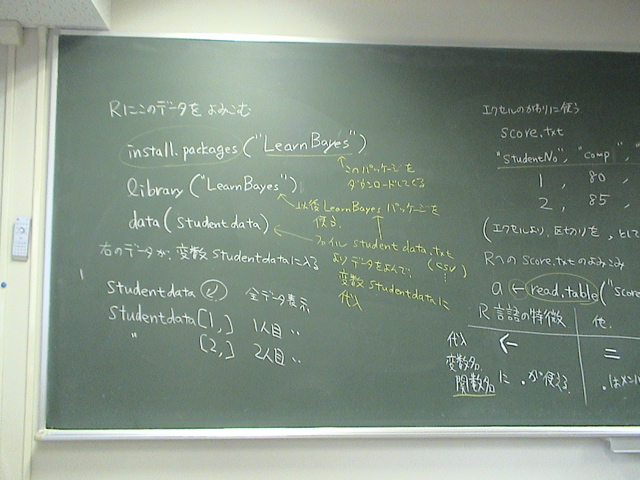 Rにこのデータをよみこむ
install.packages("LearnBayes")
このパッケージを
ダウンロードしてくる
library("LearnBayes")
以後LearnBayesパッケージを
使う
data(studentdata)
ファイル studentdata.txt
(csv)
よりデータをよんで、
変数 studentdataに
代入
右のデータが、変数 studentdataに入る
Studentdata 全データ表示
Studentdata[1,] 1人目 〃
〃 [2,] 2人目 〃
エクセルのかわりに使う
score.txt
"StudentNo", "comp
1, 80
2, 85,
(エクセルより、区切りを,として
Rへのscore.txtのよみこみ
a ← read.table("score
R言語の特徴 他.
代入 ← =
変数名
関数名 に . が使える .はメンバ